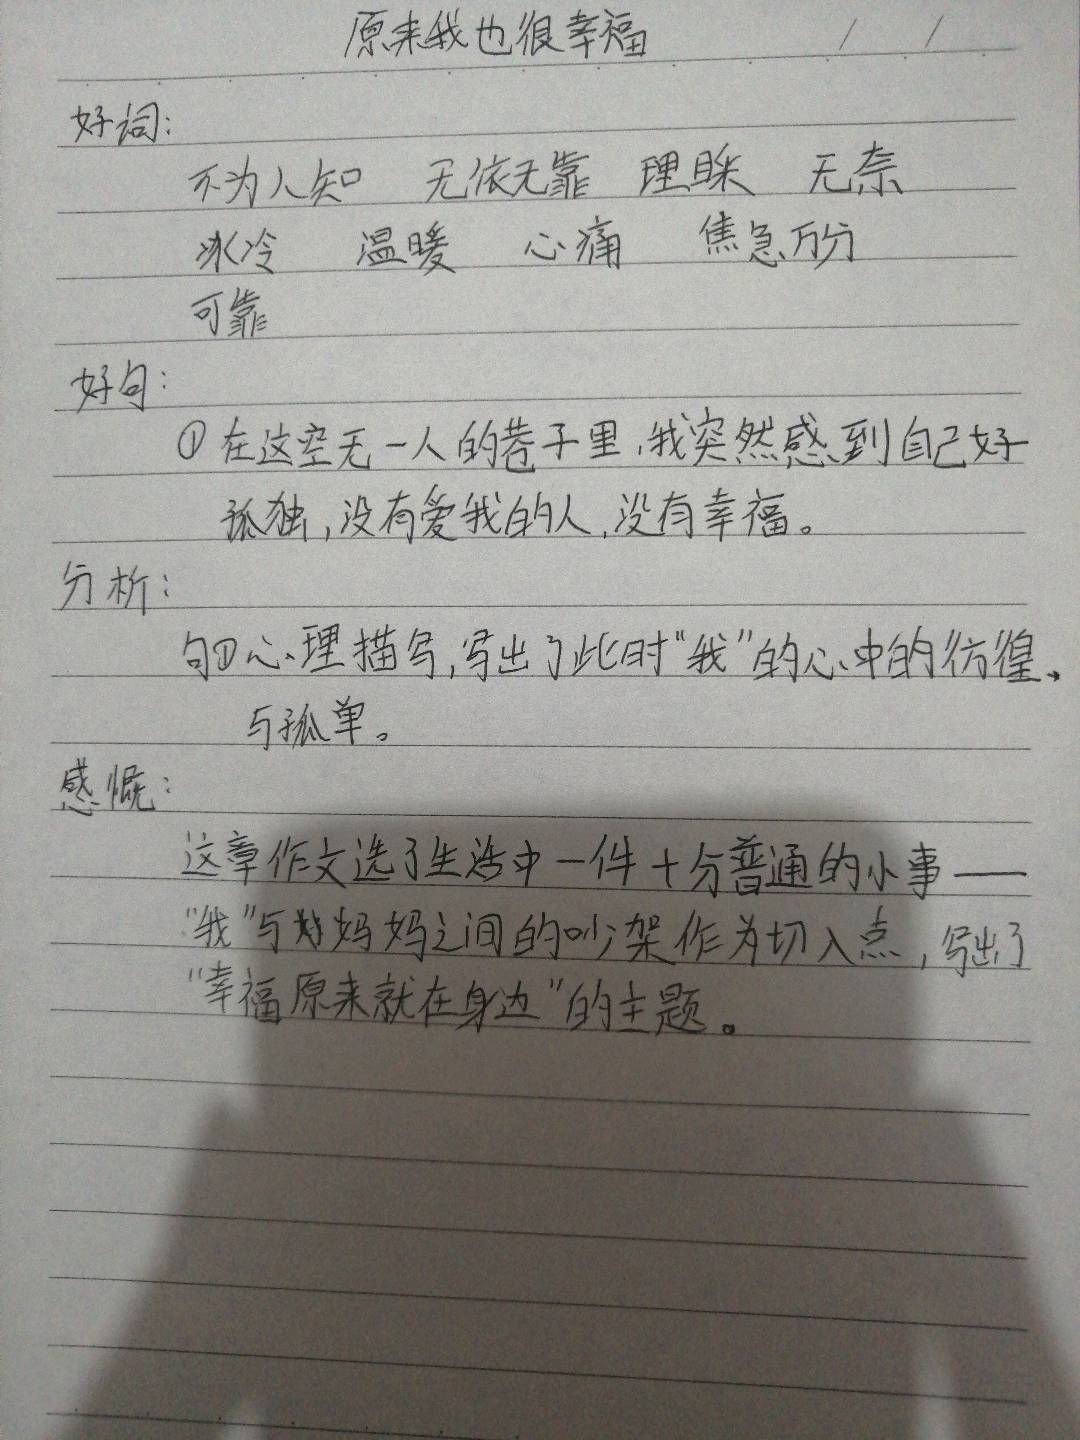 原来我也很幸福
好词:
不为人知 无依无靠 理睬 无奈
冰冷 温暖 心痛 焦急万分
可靠
好句:
①在这空无一人的巷子里,我突然感到自己好
孤独,没有爱我的人,没有幸福。
分析:
句①心理描写,写出了此时“我”的心中的彷徨、
与孤单。
感慨:
这章作文选了生活中一件十分普通的小事——
“我”与妈妈之间的吵架作为切入点,写出了
“幸福原来就在身边”的主题。